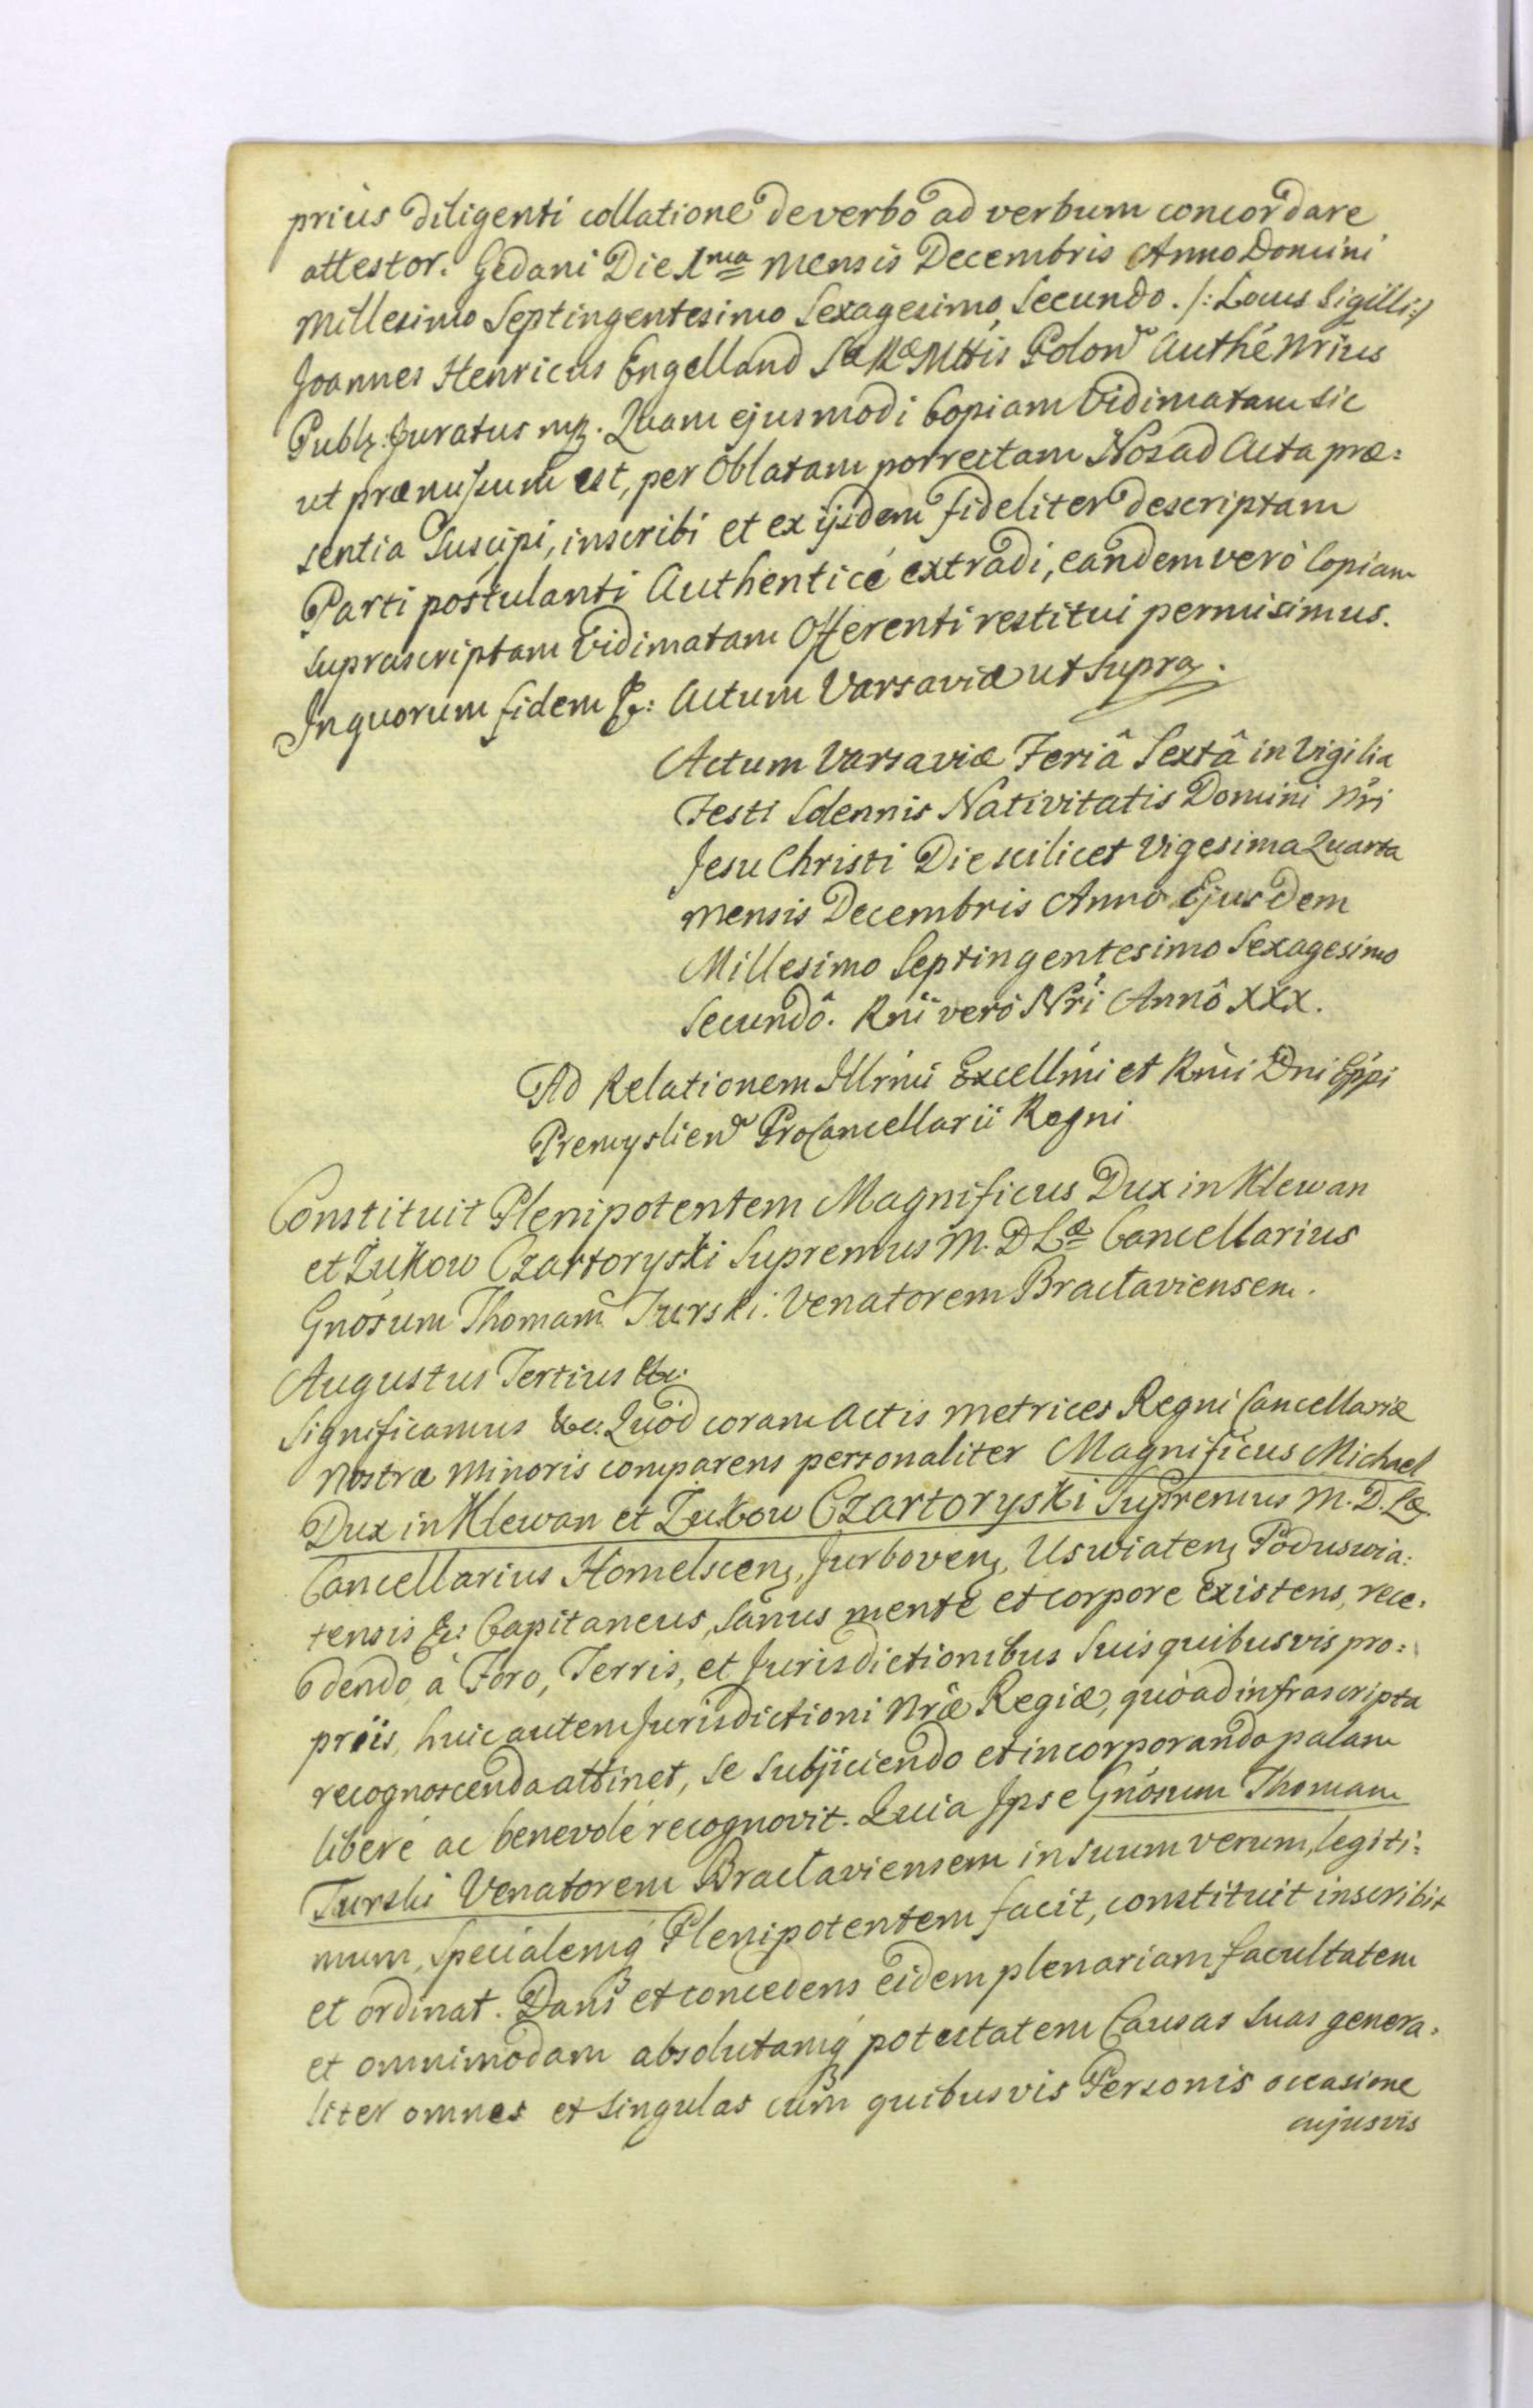 prius diligenti collatione de verbo ad verbum concordare
attestor. Gedani Die 1ma Mensis Decembris Anno Domini
Millesimo Septingentesimo Sexagesimo Secundo. /:Locus Sigilli:/
Joannes Henricus Engelland Sæ Ræ Mttis Polon. Authẽ Nrius
Publ: Juratus mp. Quam ejusmodi Copiam Vidimatam sic
ut præmissum est, per Oblatam porrectam Nos ad Acta præ:
sentia Suscipi, inscribi et ex ijsdem fideliter descriptam
Parti postulanti Authenticé extradi, eandem verò Copiam
Suprascriptam Vidimatam Offerenti restitui permisimus.
In quorum fidem &: Actum Varsaviæ ut supra.
Actum Varsaviæ Feriâ Sextâ in Vigilia
Festi Solennis Nativitatis Domini Nri
Jesu Christi Die scilicet Vigesima Quarta
Mensis Decembris Anno Ejusdem
Millesimo Septingentesimo Sexagesimo
Secundô. Rni verò Nri Annô XXX.
Ad Relationem Illrmi Excellmi et Rmi Dni Eppi
Premyslien ProCancellarii Regni
Constituit Plenipotentem Magnificus Dux in Klewan
et Zukow Czartoryski Supremus M. D Læ Cancellarius
Gnosum Thomam Turski Venatorem Braclaviensem.
Augustus Tertius &c:
Significamus &c. Quod coram Actis Metrices Regni Cancellariæ
Nostræ Minoris comparens personaliter Magnificus Michael
Dux in Klewan et Zukow Czartoryski Supremus M. D. Læ
Cancellarius Homelscen, Jurboven, Uswiaten, Poduswia:
tensis &: Capitaneus, Sanus mente et corpore existens, rece:
dendo à Foro, Terris, et Jurisdictionibus Suis quibusvis pro:
priis, huic autem Jurisdictioni Nræ Regiæ, quò ad infrascripta
recognoscenda attinet, se subjiciendo et incorporando palam
liberé ac benevolé recognovit. Quia Ipse Gnosum Thomam
Turski Venatorem Braclaviensem in suum verum, legiti:
mum, Specialemq Plenipotentem facit, constituit inscribit
et ordinat. Dans et concedens eidem plenariam facultatem
et omnimodam absolutamq potestatem Causas Suas genera:
liter omnes et singulas cum quibusvis Personis occasione
cujusvis